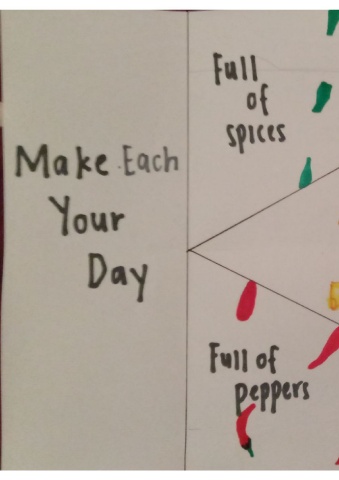 Make Each
Your
Day
Full
of
spices
Full of
peppers